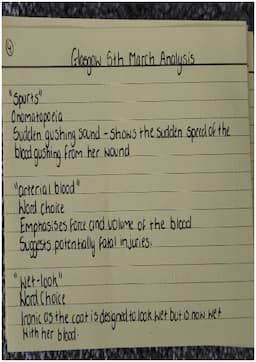 4
Glasgow 5th March Analysis
"Spurts"
Onomatopoeia
Sudden gushing sound - shows the sudden speed of the
blood gushing from her wound
"arterial blood"
Word Choice
Emphasises force and volume of the blood
Suggests potentially fatal injuries.
"Wet-look"
Word Choice
Ironic as the coat is designed to look wet but is now wet
with her blood.